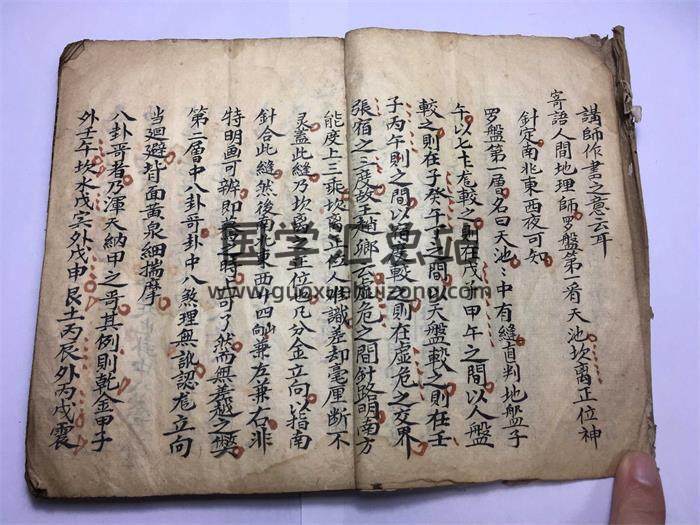 講師作書之意云耳
寄語人間地理師罗盤第一看天池坎离正位神
針定南北東西夜可知
罗盤第一層名曰天池〻中有縫直判地盤子
午以七十二龙較之則在戊子甲午之間以人盤
較之則在子癸午丁之間以天盤較之則在壬
子丙午則之間以宿度較則在虛危之交界
張宿之三度故王趙卿云虛危之間針路明南方
度上三乘坎离正位人难識差却毫厘断不
灵盖此縫乃坎离之正位也凡分金立向以指南
針合此縫然後南北東西廿四山向兼左兼右非
特明画可辨即之時亦可了然而無差越之獘
第二層中八卦哥卦中八煞理無訛認龙立向
当廻避背面黄泉細揣摩
八卦哥者乃渾天納甲之哥其例則乾金甲子
外壬午坎水戊寅外戊申艮土丙辰外丙戌震
国学汇总站
www.guoxuehuizong.com